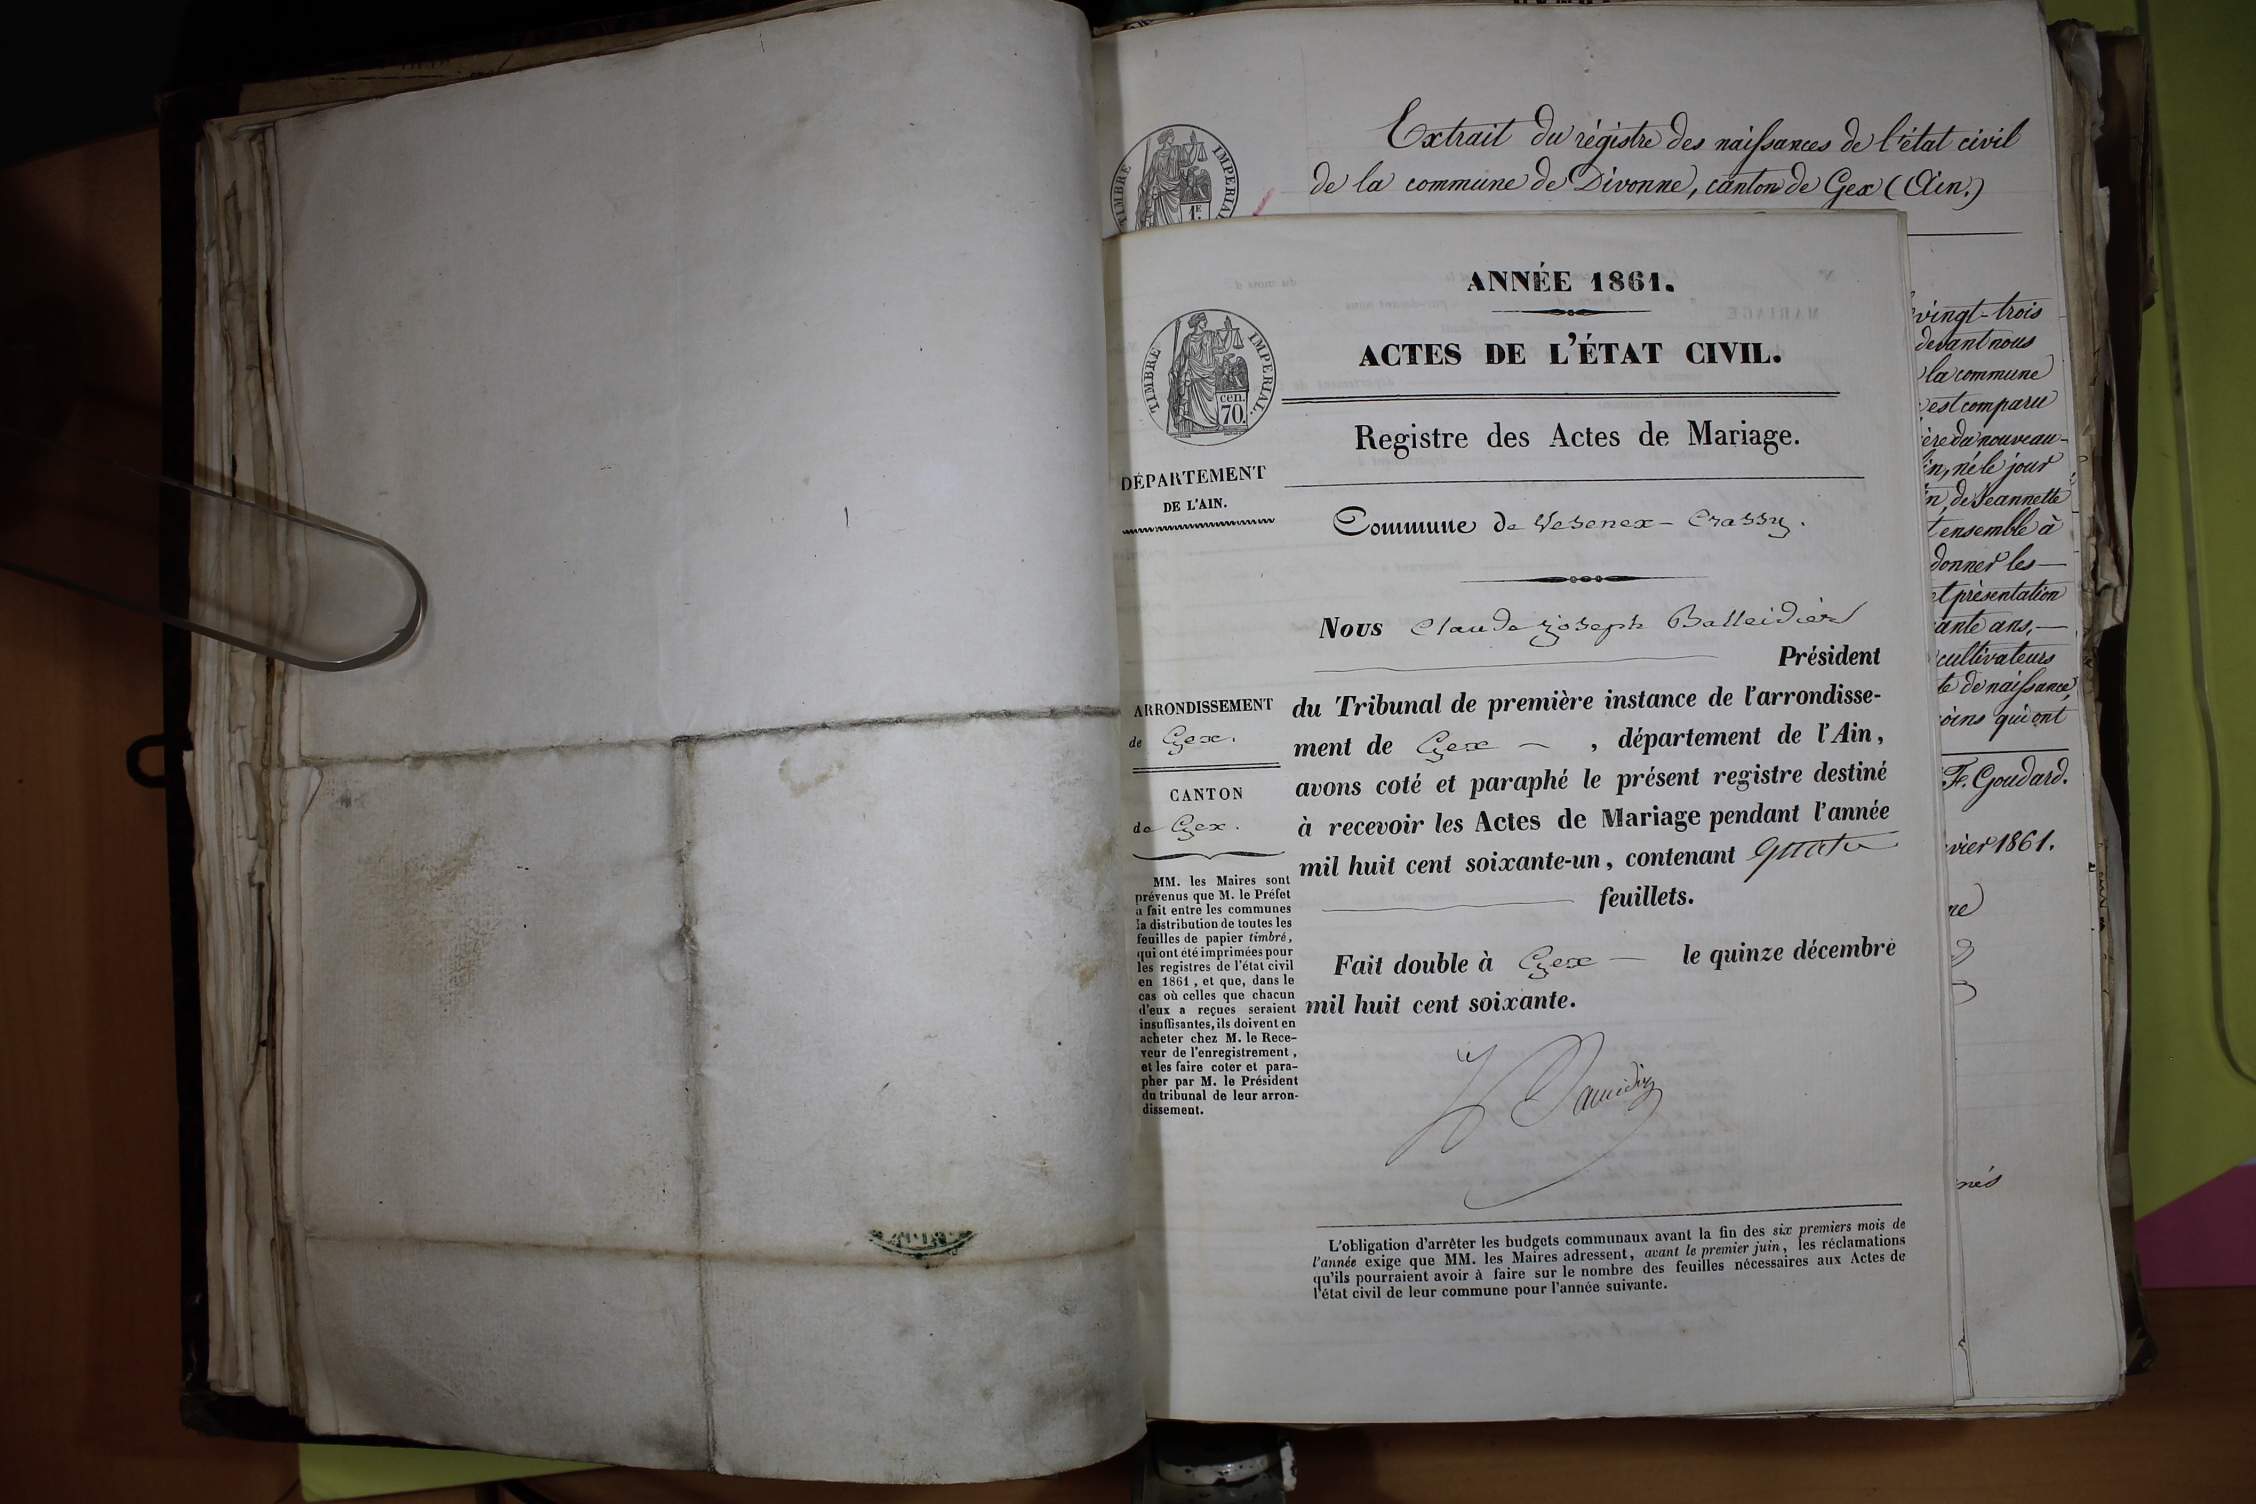 Extrait du régistre des naissances de l'état civil
de la commune de Divonne, canton de Gex (Ain.)
TIMBRE IMPERIAL
1.E
vingt-trois
devant nous
la commune
est comparu
du nouveau-
né le jour
de Jeannette
ensemble à
donner les —
présentation
ans, —
cultivateurs
de naissance,
qui ont
F. Goudard.
1861.
ANNÉE 1861.
ACTES DE L'ÉTAT CIVIL.
TIMBRE IMPERIAL.
cen.
70.
Registre des Actes de Mariage.
DÉPARTEMENT
DE L'AIN.
Commune de Vesenex - Crassy.
Nous Claude Joseph Balleidier
Président
du Tribunal de première instance de l'arrondisse-
ment de Gex — , département de l'Ain,
avons coté et paraphé le présent registre destiné
à recevoir les Actes de Mariage pendant l'année
mil huit cent soixante-un, contenant quatre
feuillets.
Fait double à Gex — le quinze décembre
mil huit cent soixante.
ARRONDISSEMENT
de Gex.
CANTON
de Gex.
MM. les Maires sont
prévenus que M. le Préfet
a fait entre les communes
la distribution de toutes les
feuilles de papier timbré,
qui ont été imprimées pour
les registres de l'état civil
en 1861, et que, dans le
cas où celles que chacun
d'eux a reçues seraient
insuffisantes, ils doivent en
acheter chez M. le Rece-
veur de l'enregistrement,
et les faire coter et para-
pher par M. le Président
du tribunal de leur arron-
dissement.
L'obligation d'arrêter les budgets communaux avant la fin des six premiers mois de
l'année exige que MM. les Maires adressent, avant le premier juin, les réclamations
qu'ils pourraient avoir à faire sur le nombre des feuilles nécessaires aux Actes de
l'état civil de leur commune pour l'année suivante.